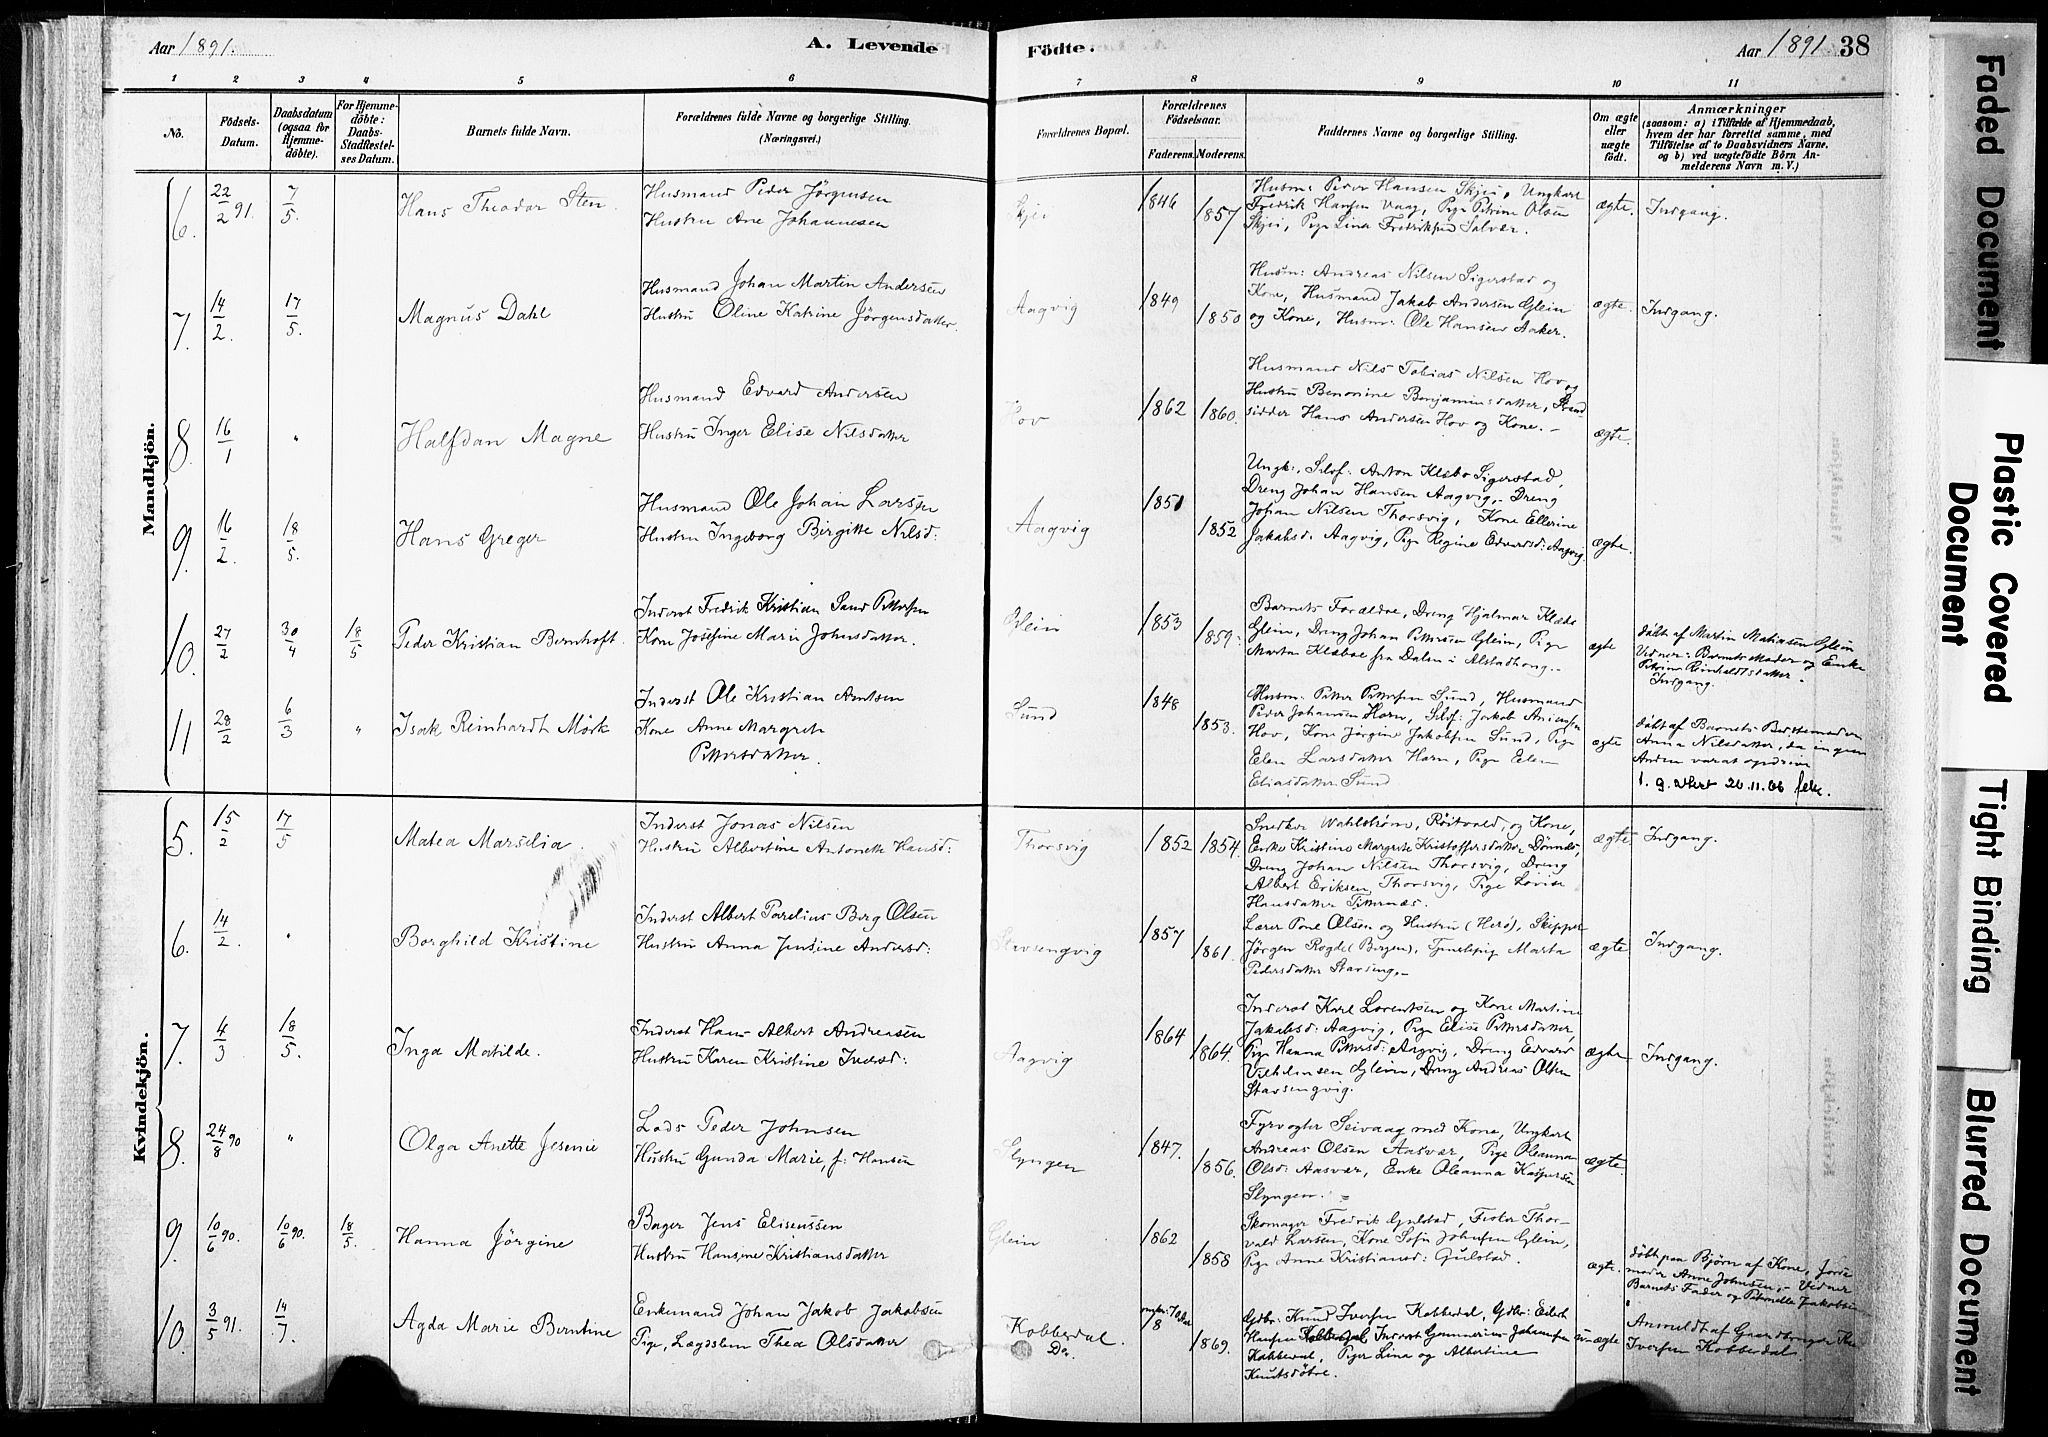 Aar 1891.
A. Levende
Födte.
Aar 1891 38
1 2 3 4 5 6 7 8 9 10 11
No.
Födsels-
Datum.
Daabsdatum
(ogsaa for
Hjemme-
döbte).
For Hjemme-
döbte:
Daabs-
Stadfæstel-
ses Datum.
Barnets fulde Navn.
Forældrenes fulde Navne og borgerlige Stilling.
(Næringsvei.)
Forældrenes Bopæl.
Forældrenes
Födselsaar.
Faderens. Moderens.
Faddernes Navne og borgerlige Stilling.
Om ægte
eller
uægte
födt.
Anmærkninger
(saasom: a) i Tilfælde af Hjemmedaab,
hvem der har forrettet samme, med
Tilföielse af to Daabsvidners Navne,
og b) ved uægtefödte Börn An-
melderens Navn m. V.)
Mandkjön.
6. 22/2 91. 7/5 Hans Theodor Sten
Husmand Peder Jörgensen
Hustru Ane Johannesen
1846
1857
Husm: Peder Hansen Skjei, Ungkarl
Fredrik Hansen Vaag, Pige Petrine Olsen
Skjei, Pige Lina Fredriksen Salvær.
ægte. Indgang.
7. 14/2. 17/5. Magnus Dahl
Husmand Johan Martin Andersen
Hustru Oline Katrine Jörgensdatter.
Aagvig
1849
1850
Husm: Andreas Nilsen Sigerstad og
Kone, Husmand Jakob Andersen Glein
og Kone, Husm: Ole Hansen Aaker.
ægte. Indgang.
8. 16/1 " Halfdan Magne
Husmand Edvard Andersen
Hustru Inger Elise Nilsdatter
Hov
1862
1860.
Husmand Nils Tobias Nilsen Hov og
Hustru Benonine Benjaminsdatter, Strand
sidder Hans Andersen Hov og Kone. -
ægte.
9. 16/2. 18/5. Hans Greger
Husmand Ole Johan Larsen
Hustru Ingeborg Birgitte Nilsd:
Aagvig
1851
1852
Ungk:, Selvf: Anton Klæbo Sigerstad,
Dreng Johan Hansen Aagvig, Dreng
Johan Nilsen Thorsvig, Kone Ellerine
Jakobsd: Aagvig, Pige Regine Edvardsd: Aagvig.
ægte.
10. 27/2 30/4 18/5 Peder Kristian Bernhoft.
Inderst Fredrik Kristian Sand Pettersen
Kone Josefine Marie Johnsdatter.
Glein
1853
1859.
Barnets Forældre, Dreng Hjalmar Klæbo
Glein, Dreng Johan Pettersen Glein, Pige
Marta Klæboe fra Dalen i Alstadhoug. -
ægte
döbt af Martin Matiasen Glein
Vidner: Barnets Moder og Enke
Petrine Reinholdtsdatter.
Indgang.
11 28/2 6/3 " Isak Reinhardt Mörk
Inderst Ole Kristian Arntsen
Kone Anne Margrete
Pettersdatter.
Sund
1848
1853.
Husm: Petter Pettersen Sund, Husmand
Peder Johansen Horn, Selvf: Jakob
Hov, Kone Jörgine Jakobsen Sund, Pige
Elen Larsdatter Horn, Pige Elen
Eliasdatter Sund
ægte
döbt af Barnets Bedstemoder
Anna Nilsdatter, da ingen
Anden var at opdrive
26.11.66
Kvindekjön.
5. 15/2 17/5 Matea Marselia.
Inderst Jonas Nilsen
Hustru Albertine Antonette Hansd:
Thorsvig
1852 1854.
Snedker Wahlstrøm, Röitvold, og Kone,
Enke Kristine Margrete Kristoffersdatter Dönnes,
Dreng Johan Nilsen Thorsvig, Dreng
Albert Eriksen, Thorsvig, Pige Lovise
Hansdatter
ægte. Indgang.
6. 14/2. " Borghild Kristine
Inderst Albert Parelius Berg Olsen
Hustru Anna Jensine Andersd:
Stavsengvig
1857
1861.
Lærer Pone Olsen og Hustru (Herö), Skipper
Jörgen Rogde (Bergen), Tjenestepige Marta
Pedersdatter Stavseng. -
ægte Indgang.
7. 4/3 18/5. Inga Matilde.
Inderst Hans Albert Andreasen
Hustru Karen Kristine Iversd:
Aagvig
1864
1864.
Inderst Karl Lorentsen og Kone Martine
Jakobsd: Aagvig, Pige Elise Pettersdatter,
Pige Hanna Pettersd: Aagvig, Dreng Edvard
Vilhelmsen Glein, Dreng Andreas Olsen
Stavsengvig.
ægte Indgang.
8. 24/8 90 " Olga Anette Jesenie
Lods Peder Johnsen
Hustru Gunda Marie, f: Hansen
Slyngen
1847.
1856.
Fyrvogter Seivaag med Kone, Ungkarl
Andreas Olsen Aasvær, Pige Oleanna
Olsd: Aasvær, Enke Oleanna Kaspersen
Slyngen.
ægte.
9. 10/6 90. 10/6 90. 18/5. Hanna Jörgine
Bager Jens Eliseussen
Hustru Hansine Kristiansdatter
Glein
1862
1858
Skomager Fredrik Gulstad, Thor-
vald Larsen, Kone Sofie Johnsen Glein,
Pige Anne Kristiansd: Gulstad.
ægte.
döbt paa Bjørn af Kone, Jorde
moder Anne Johnsen, - Vidner
Barnets Fader og Pernelle Jakobsen
10. 3/5 91. 14/7 Agda Marie Berntine
Enkemand Johan Jakob Jakobsen
Pige, Lægdslem Thea Olsdatter
Kobberdal.
Do.
1869.
Gdbr: Knud Iversen Kobberdal, Gdbr: Edsert
Hansen Kobberdal, Inderst Gunnerius Johansen
Kobberdal, Piger Lina og Albertine
Knutsdötre.
uægte
Anmeldt af Gaardbruger
Iversen Kobberdal.
Faded Document
Plastic Covered
Document
Tight Binding
Blurred Document